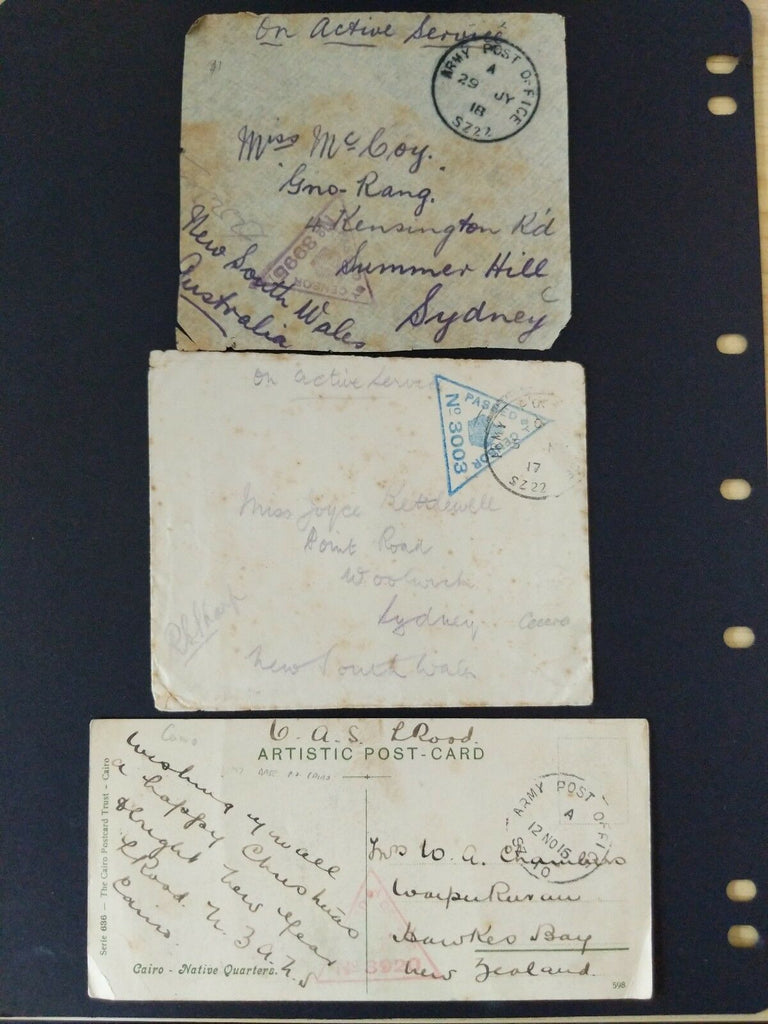 On Active Service
ARMY POST OFFICE
A
29 JY
18
SZ22
Miss McCoy.
"Gno-Rang.
4 Kensington Rd
Summer Hill
Sydney
New South Wales
Australia
BY CENSOR
No 3995
On Active Service
PASSED BY
CENSOR
No 3003
ARMY
17
SZ22
Miss Joyce Kettlewell
Point Road
Woolwich
Sydney
New South Wales
ARTISTIC POST-CARD
Wishing you all
a happy Christmas
& bright New Year
Cairo.
Serie 636 – The Cairo Postcard Trust - Cairo
Cairo - Native Quarters.
ARMY POST OFFI
A
12 NO 15
SZ 10
Mrs W. A. Chambers
Waipukurau
Hawkes Bay
New Zealand.
No 3920
598